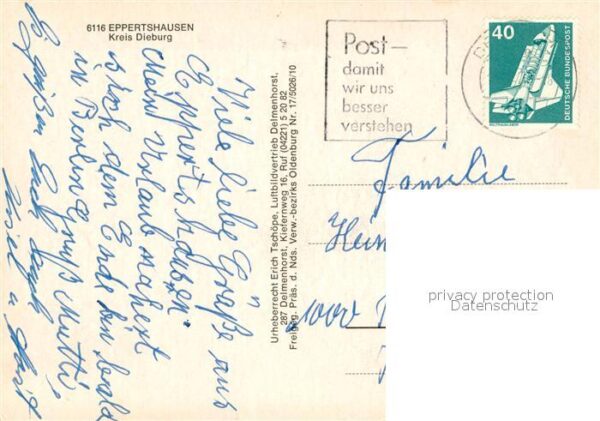 6116 EPPERTSHAUSEN
Kreis Dieburg
Viele liebe Grüße aus
Eppertshausen.
Mein Urlaub nähert
sich dem Ende bin bald
in Berlin.
Gruß Mutti
Es grüßen Euch auch
Urheberrecht Erich Tschöpe, Luftbildvertrieb Delmenhorst,
287 Delmenhorst, Kiefernweg 16, Ruf (04221) 5 20 82
Freigeg. Präs. d. Nds. Verw.-bezirks Oldenburg Nr. 17/5026/10
Post–
damit
wir uns
besser
verstehen
40
DEUTSCHE BUNDESPOST
Familie
Hein
1000
privacy protection
Datenschutz